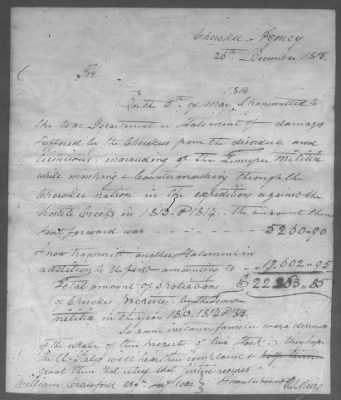 Cherokee Agency
26th December 1815.
Sir
On the 5th of May, 1814 I transmitted to
the War Department a Statement of damage
suffered by the Cherokees from the disorderly and
licentious marauding of the Tennessee Militia
while marching & Countermarching through the
Cherokee nation in the expeditions against the
hostile Creeks in 1813 & 1814. The amount then
sent forward was 5260-90
I now transmit another Statement in
addition to the first amounting to 17.602-95
Total amount of spoliations $ 22.863.85
of Cherokee Property by the Tennessee
militia in the years 1813. 1814 & 15.
In some instances families were deprived
of the whole of their property of live stock.
the U. States will hear their complaints &
grant them that relief that justice requires
William Crawford Esqr. Secy War